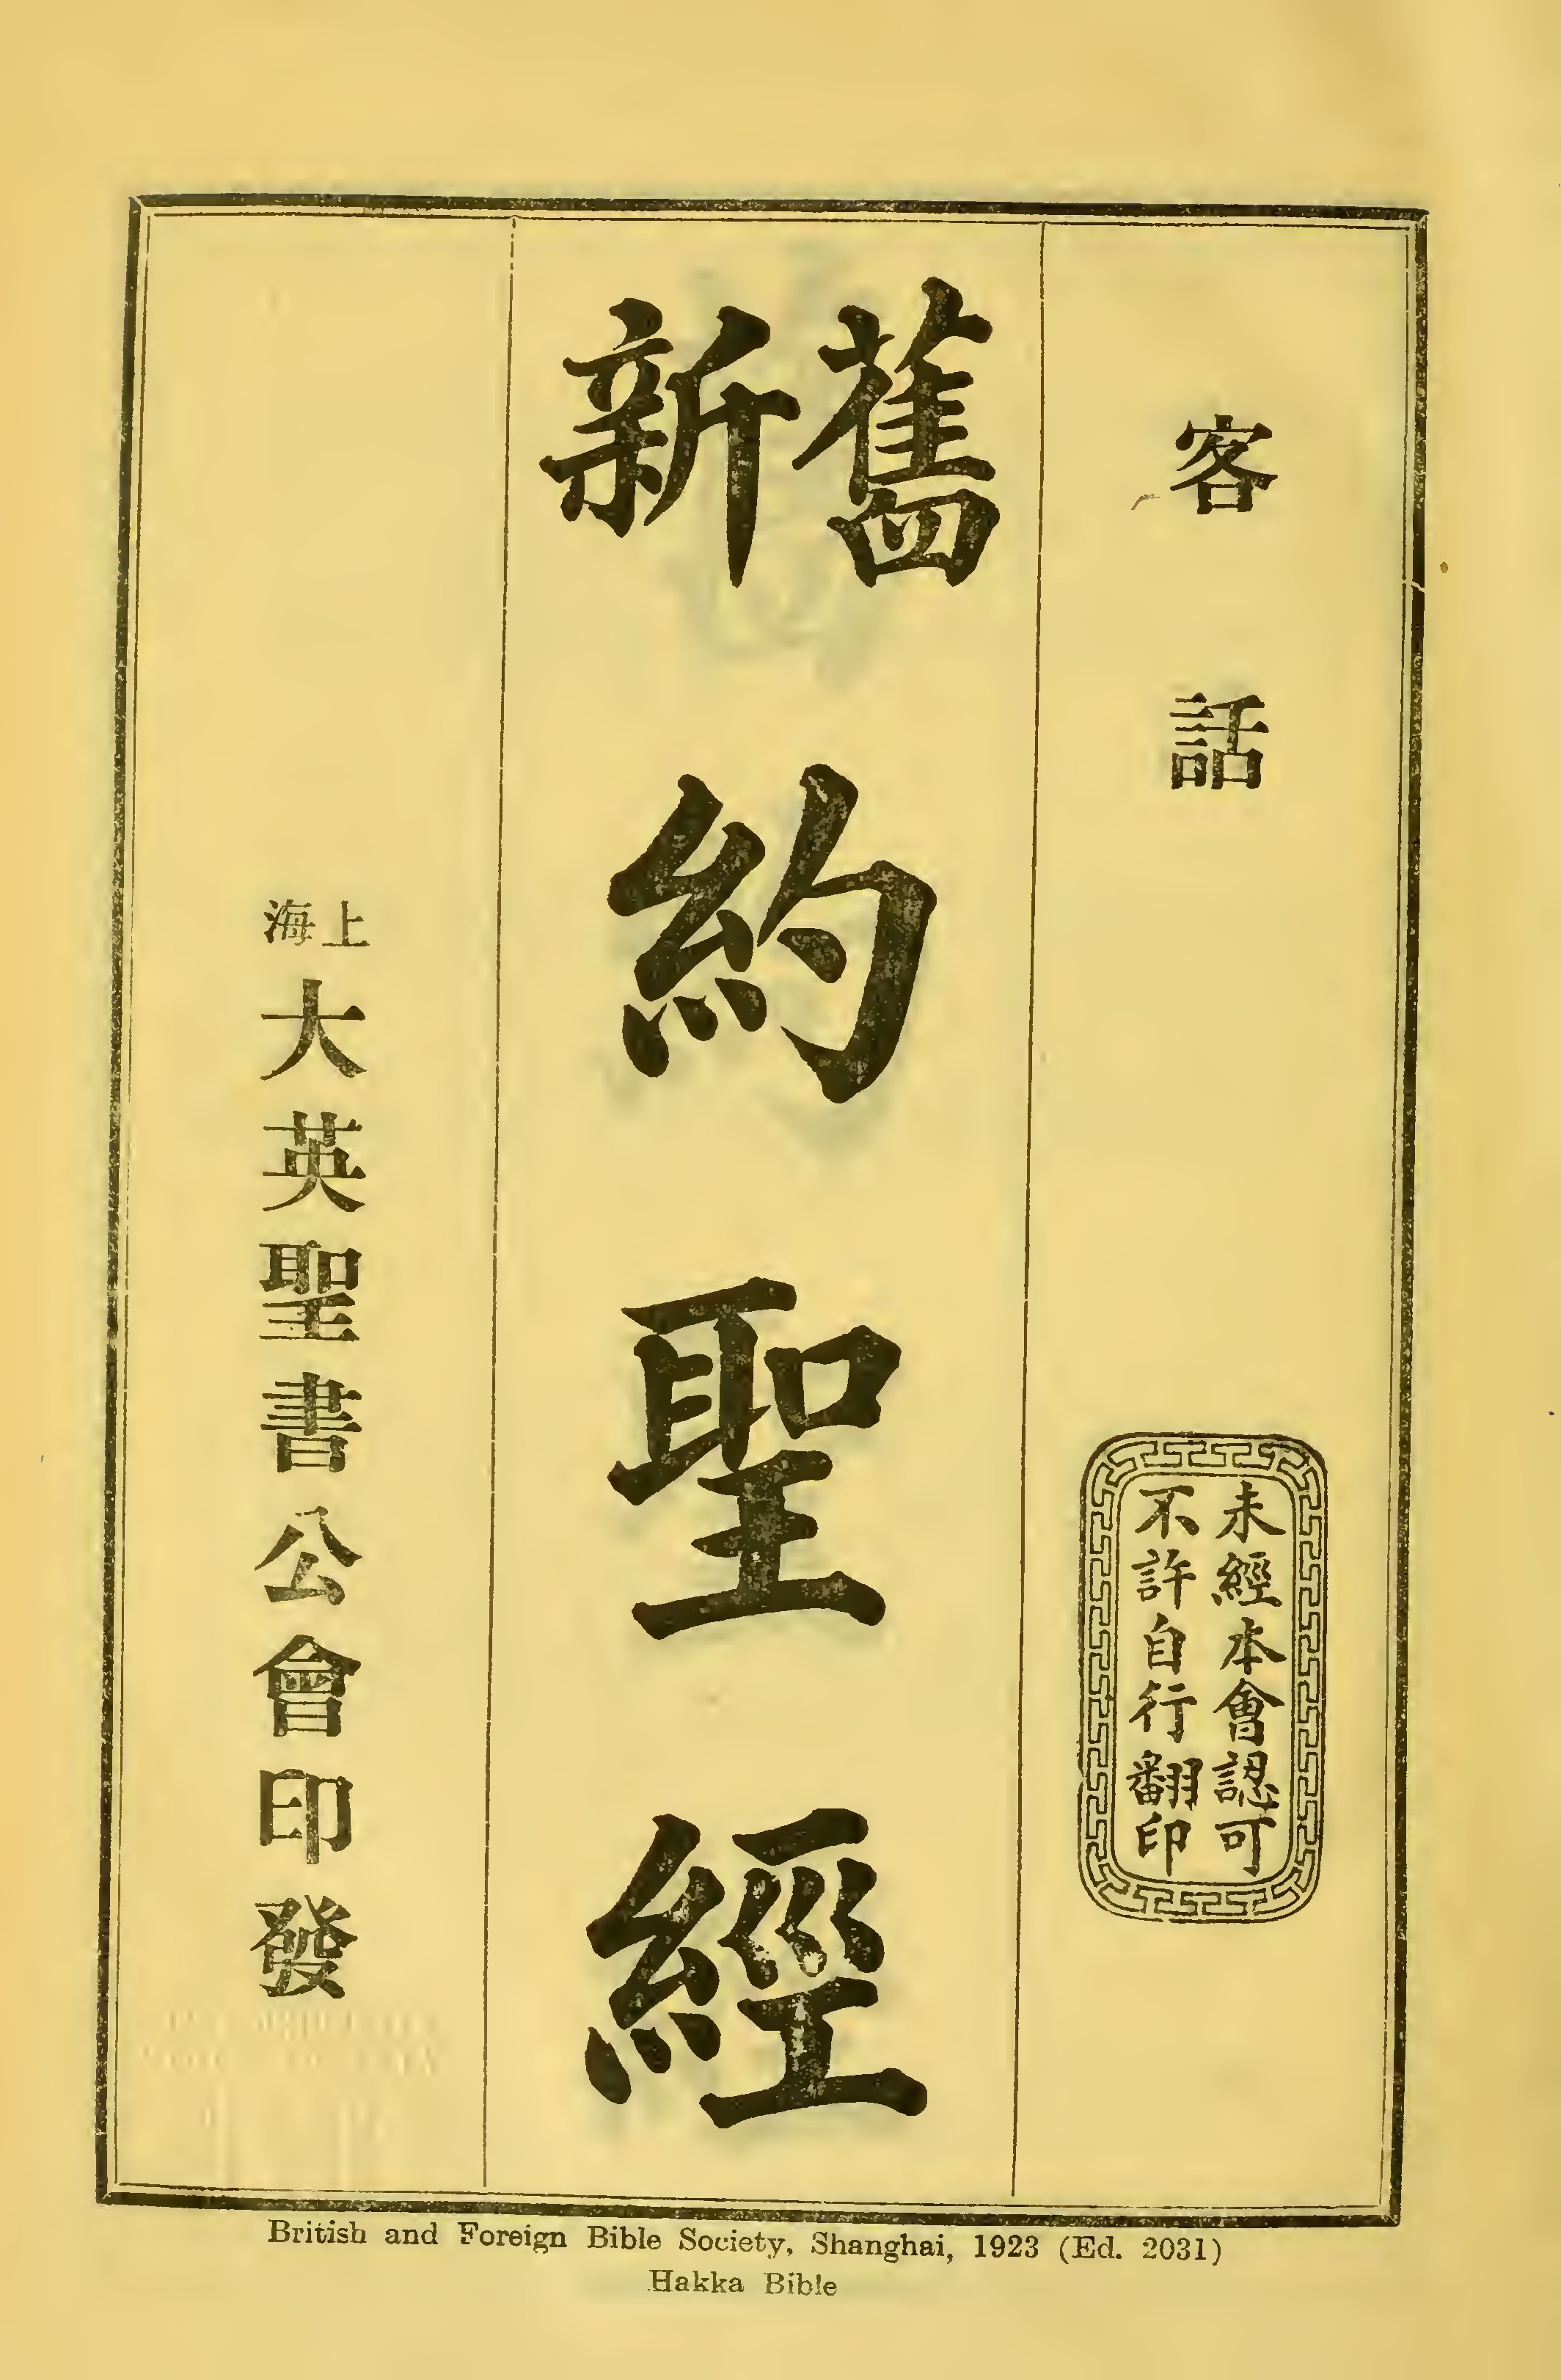 客話
未經本會認可
不許自行翻印
舊新約聖經
上海大英聖書公會印發
British and Foreign Bible Society, Shanghai, 1923 (Ed. 2031)
Hakka Bible